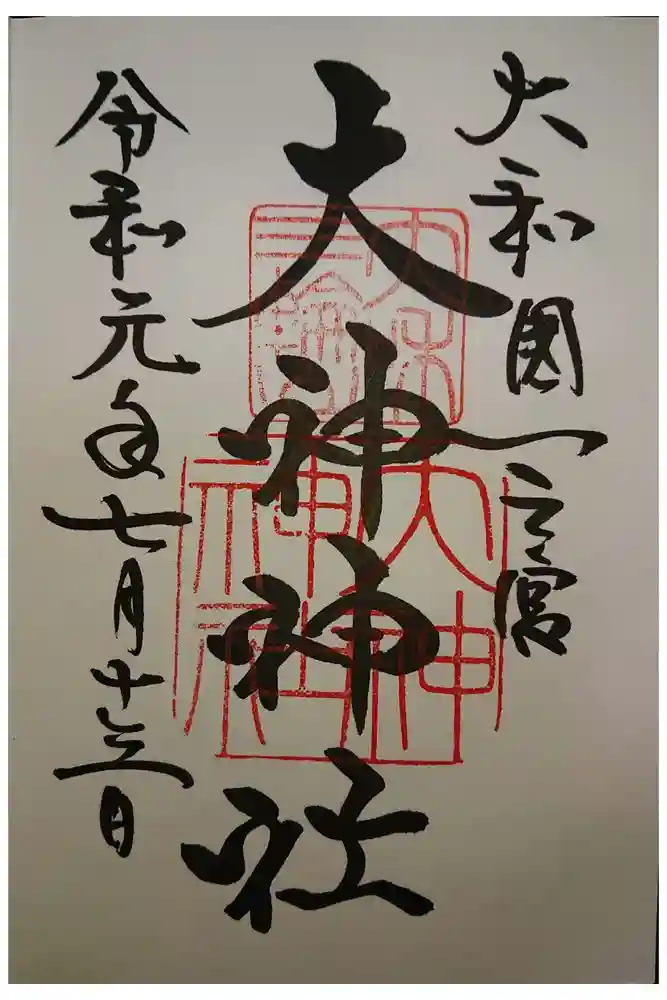 大和國一之宮
大神神社
令和元年七月十三日